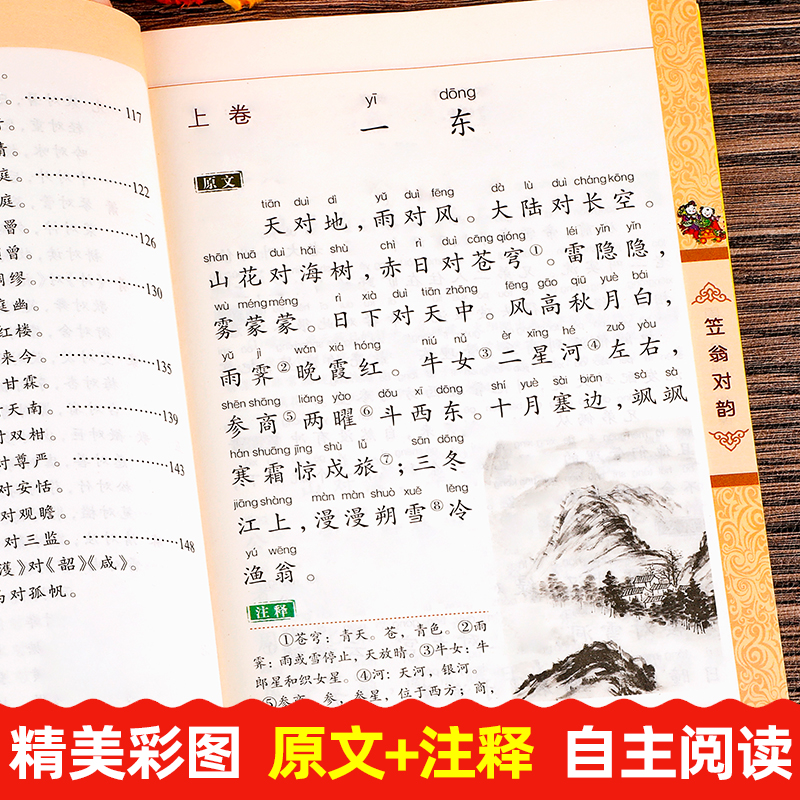 117
庭。 122
庭。
126
130
庭幽。
红楼。
来今。 135
甘霖。
天南。 139
对双柑。
对尊严。 143
对安恬。
对观瞻。
对三监。 148
濩》对《韶》《咸》。
马对孤帆。
yī dōng
上卷 一东
原文
tiān duì dì yǔ duì fēng dà lù duì cháng kōng
天对地，雨对风。大陆对长空。
shān huā duì hǎi shù chì rì duì cāng qióng léi yǐn yǐn
山花对海树，赤日对苍穹①。雷隐隐，
wù méng méng rì xià duì tiān zhōng fēng gāo qiū yuè bái
雾蒙蒙。日下对天中。风高秋月白，
yǔ jì wǎn xiá hóng niú nǚ èr xīng hé zuǒ yòu
雨霁②晚霞红。牛女③二星河④左右，
shēn shāng liǎng yào dǒu xī dōng shí yuè sài biān sà sà
参商⑤两曜⑥斗西东。十月塞边，飒飒
hán shuāng jīng shù lǚ sān dōng
寒霜惊戍旅⑦；三冬
jiāng shàng màn màn shuò xuě lěng
江上，漫漫朔雪⑧冷
yú wēng
渔翁。
注释
①苍穹：青天。苍，青色。②雨
霁：雨或雪停止，天放晴。③牛女：牛
郎星和织女星。④河：天河，银河。
⑤参商：参，参星，位于西方；商，
笠翁对韵
精美彩图 原文+注释 自主阅读